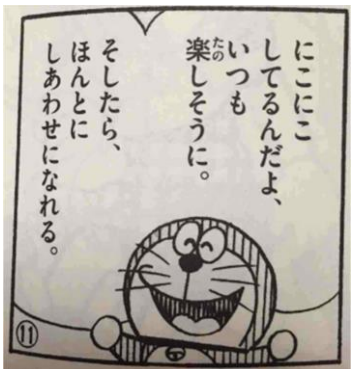 にこにこ
してるんだよ、
いつも
楽しそうに。
そしたら、
ほんとに
しあわせになれる。
⑪